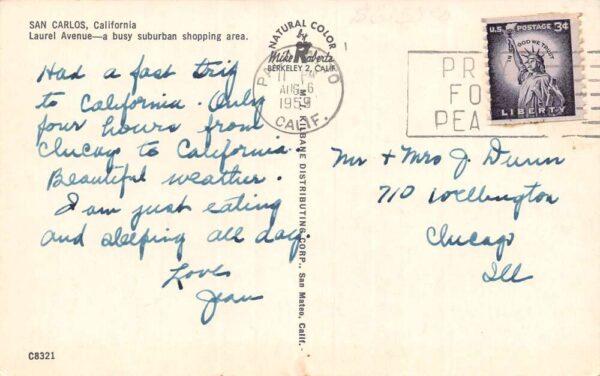 SAN CARLOS, California
Laurel Avenue—a busy suburban shopping area.
Had a fast trip
to California. Only
four hours from
Chicago to California.
Beautiful weather.
I am just eating
and sleeping all day.
Love
Jean
C8321
NATURAL COLOR
by
Mike Roberts
BERKELEY 2, CALIF.
11 PM
AUG 6
1959
CALIF.
KILBANE DISTRIBUTING CORP., San Mateo, Calif.
PR
FO
PEA
U.S. POSTAGE 3¢
IN GOD WE TRUST
LIBERTY
Mr + Mrs J. Dunn
710 Wellington
Chicago
Ill